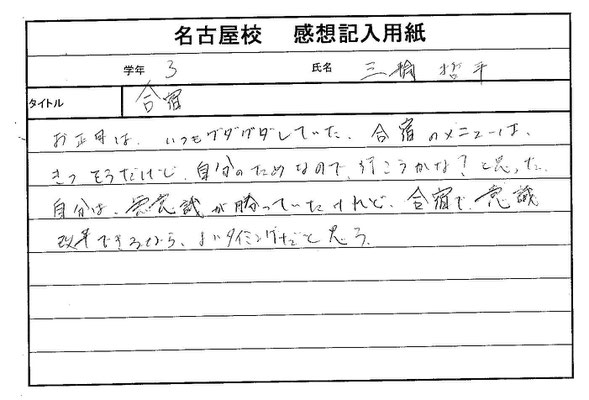 名古屋校 感想記入用紙
学年 3 氏名 三輪 哲平
タイトル 合宿
お正月は、いつもグダグダしていた。合宿のメニューは、
きつそうだけど、自分のためなので、行こうかな？と思った。
自分は、無意識が勝っていたけれど、合宿で、意識
改革できるなら、よいタイミングだと思う。